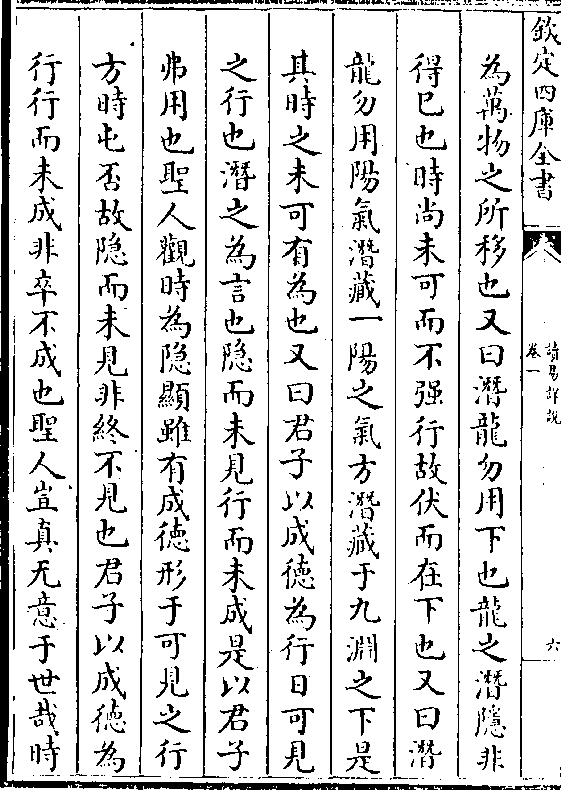 欽定四庫全書
讀易詳說
卷一
六
為萬物之所移也又曰潛龍勿用下也龍之潛隱非
得已也時尚未可而不强行故伏而在下也又曰潛
龍勿用陽氣潛藏一陽之氣方潛藏于九淵之下是
其時之未可有為也又曰君子以成德為行日可見
之行也潛之為言也隐而未見行而未成是以君子
弗用也聖人觀時為隐顯雖有成德形于可見之行
方時屯否故隐而未見非終不見也君子以成德為
行行而未成非卒不成也聖人豈真无意于世哉時